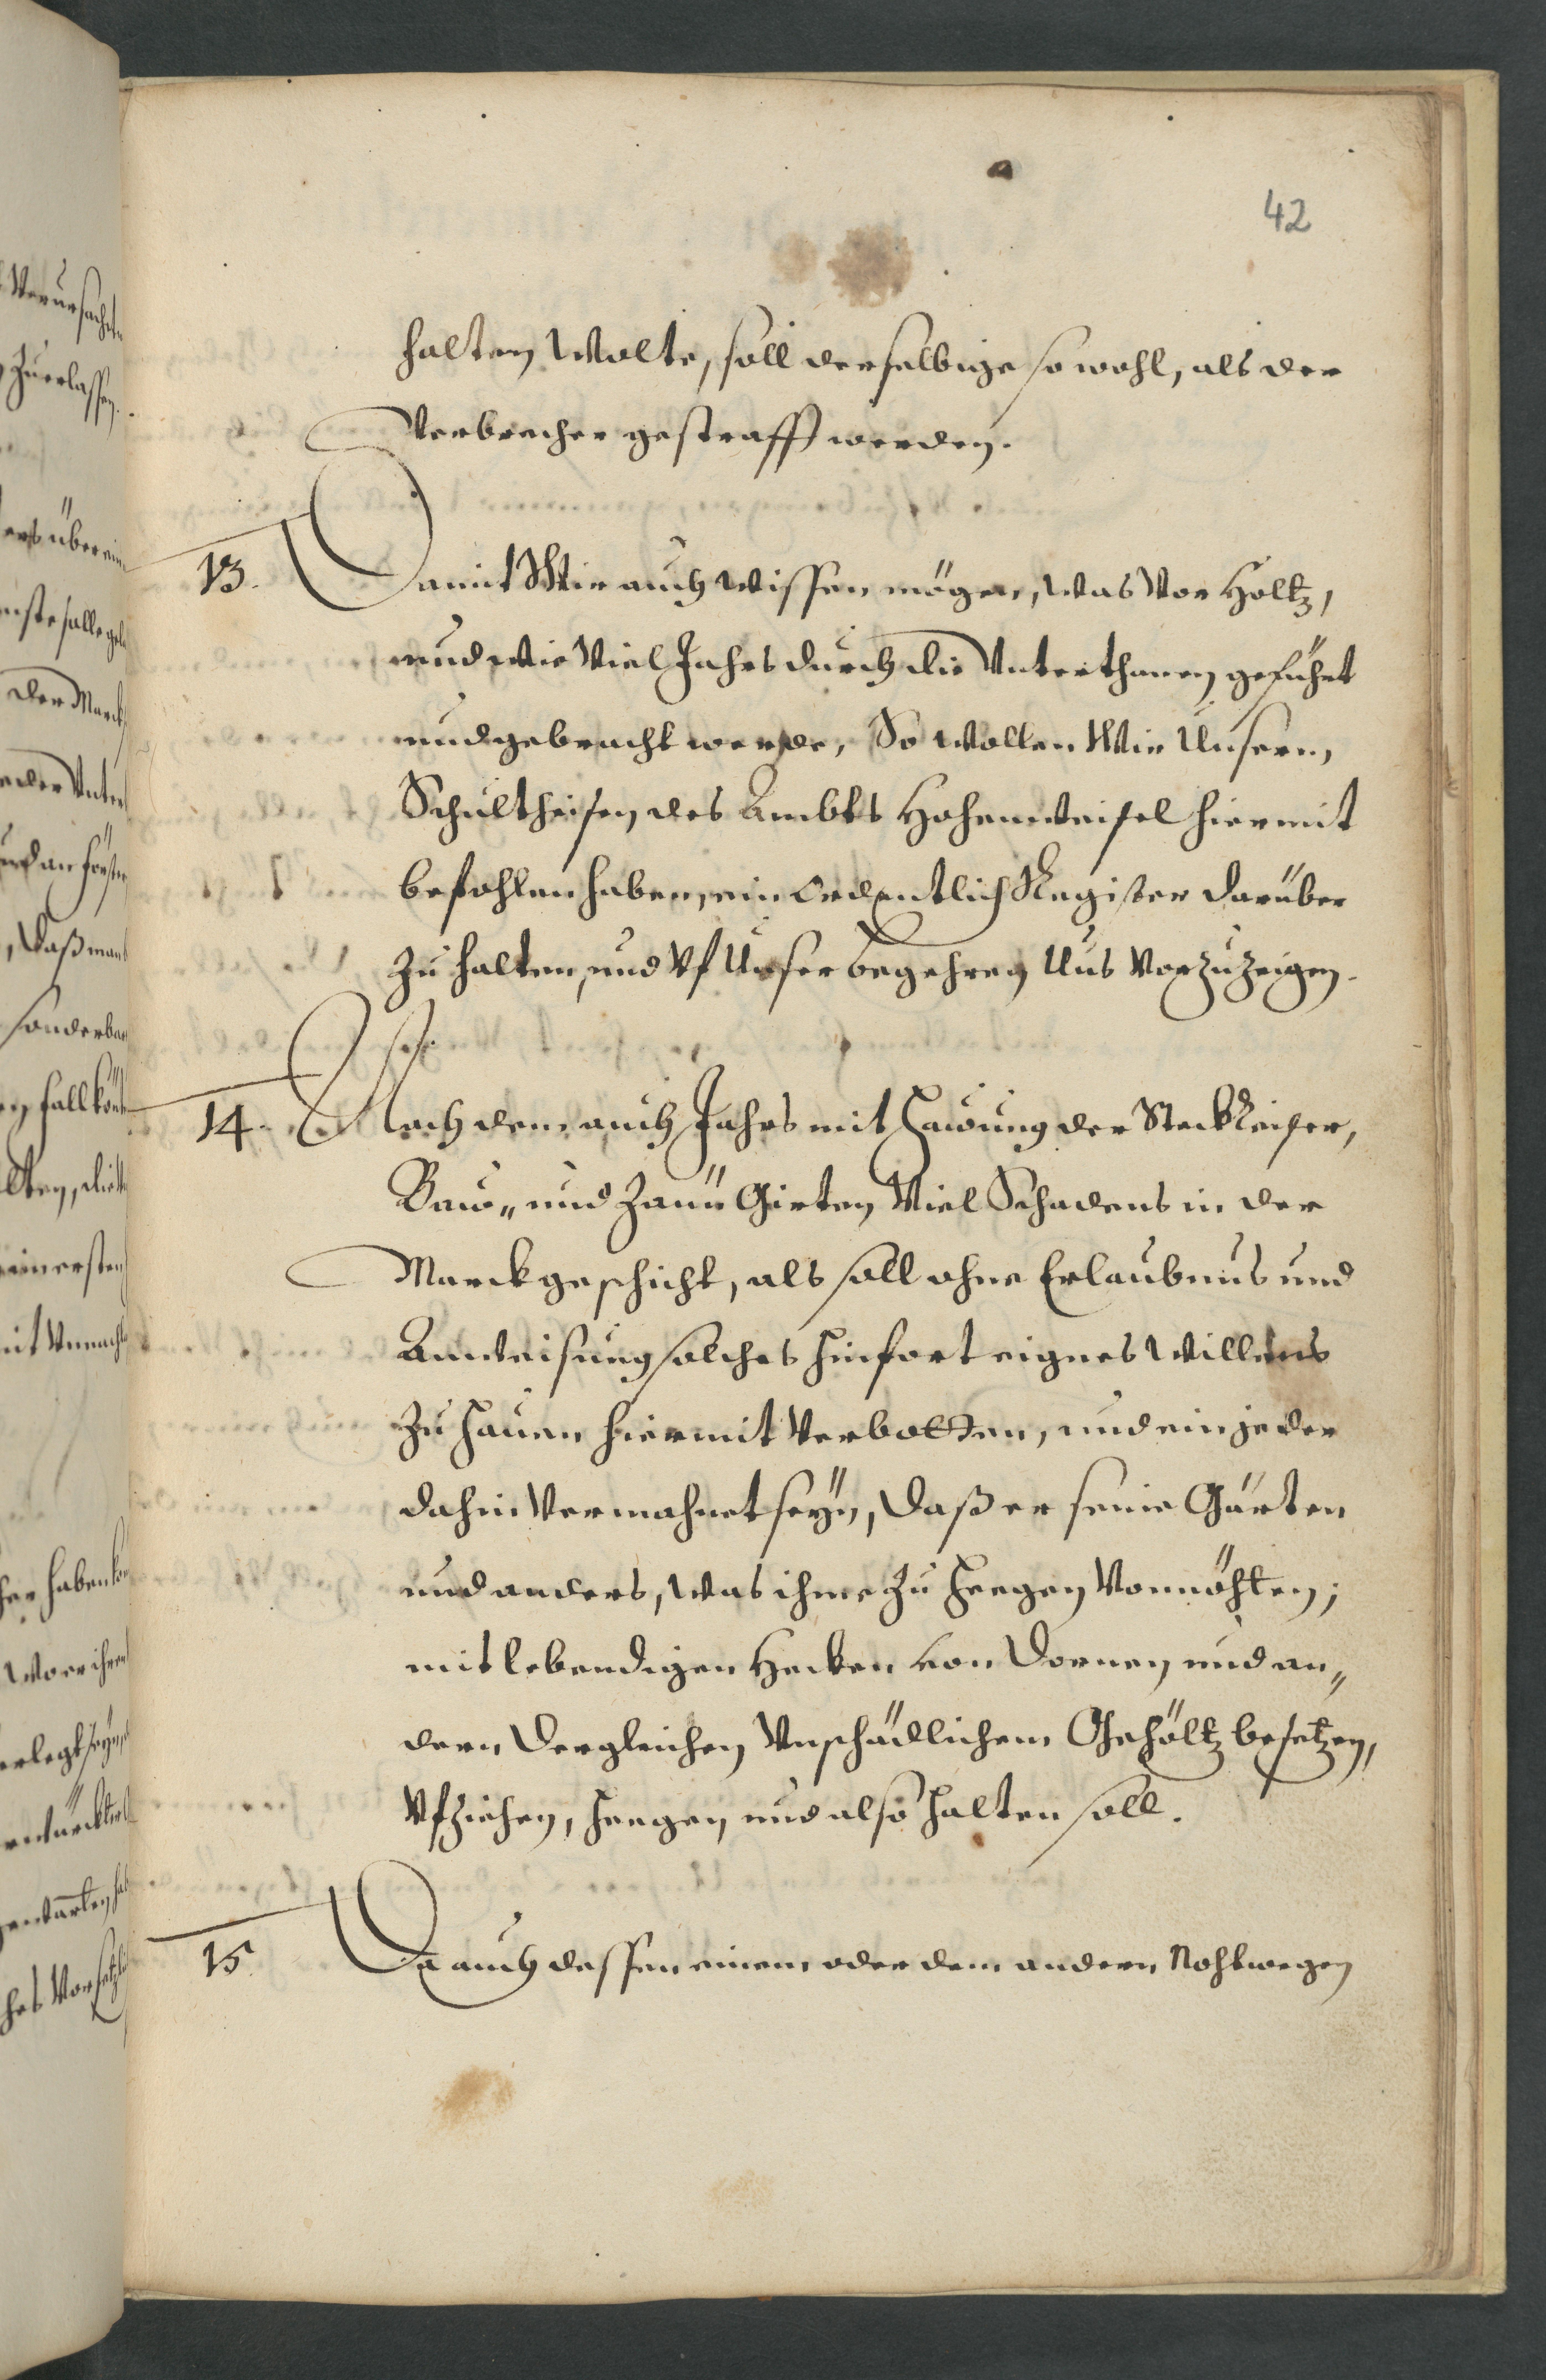 42
halten Wolte, soll derselbige so wohl, als der
Verbrecher gestrafft werden.
13. Damit Wir auch Wissen mögen, Was Vor Holtz,
und wie Viel Jahrs durch die Unterthanen geführt
und gebracht werde, So Wollen Wir Unserm
Schultheisen des Ambts Hohenweisel hiermit
befohlen haben, ein Ordentlich Register darüber
zu halten, und Vf Unser begehren Uns Vorzuzeigen.
14. Nach dem auch Jahrs mit Hawung der Steckreiser,
Baw„ und Zaun Girten Viel Schadens in der
Marck geschicht, als soll ohne Erlaubnus und
Anweisung solches hinfort eignes Willens
zu hauen hiermit Verbotten, und ein jeder
dahin Vermahnet seyn, daß er seine Gärten
und anders, Was ihme zu heegen Vonnöhten;
mit lebendigen Hecken von Dornen und an„
dern Dergleichen Unschädlichem Gehöltz besetzen,
Vfziehen, heegen und also halten soll.
15. Da auch dessen einem oder dem andern Noht wegen